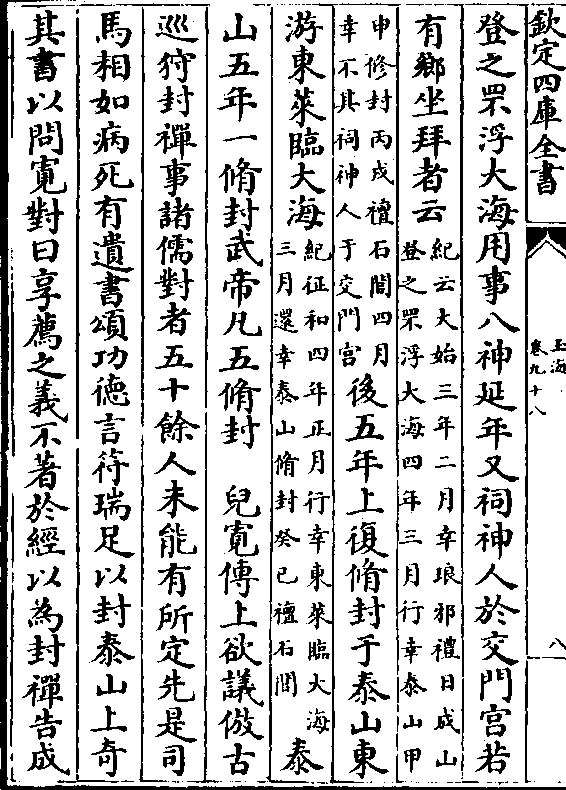 欽定四庫全書
玉海
卷九十八
八
登之罘浮大海用事八神延年又祠神人於交門宮若
有鄉坐拜者云
紀云大始三年二月幸琅邪禮日成山
登之罘浮大海四年三月行幸泰山甲
申修封丙戌禮石閭四月
幸不其祠神人于交門宮
後五年上復脩封于泰山東
游東萊臨大海
紀征和四年正月行幸東萊臨大海
三月還幸泰山脩封癸巳禮石閭
泰
山五年一脩封武帝凡五脩封 兒寬傳上欲議倣古
巡狩封禪事諸儒對者五十餘人未能有所定先是司
馬相如病死有遺書頌功德言符瑞足以封泰山上奇
其書以問寬對曰享薦之義不著於經以為封禪告成